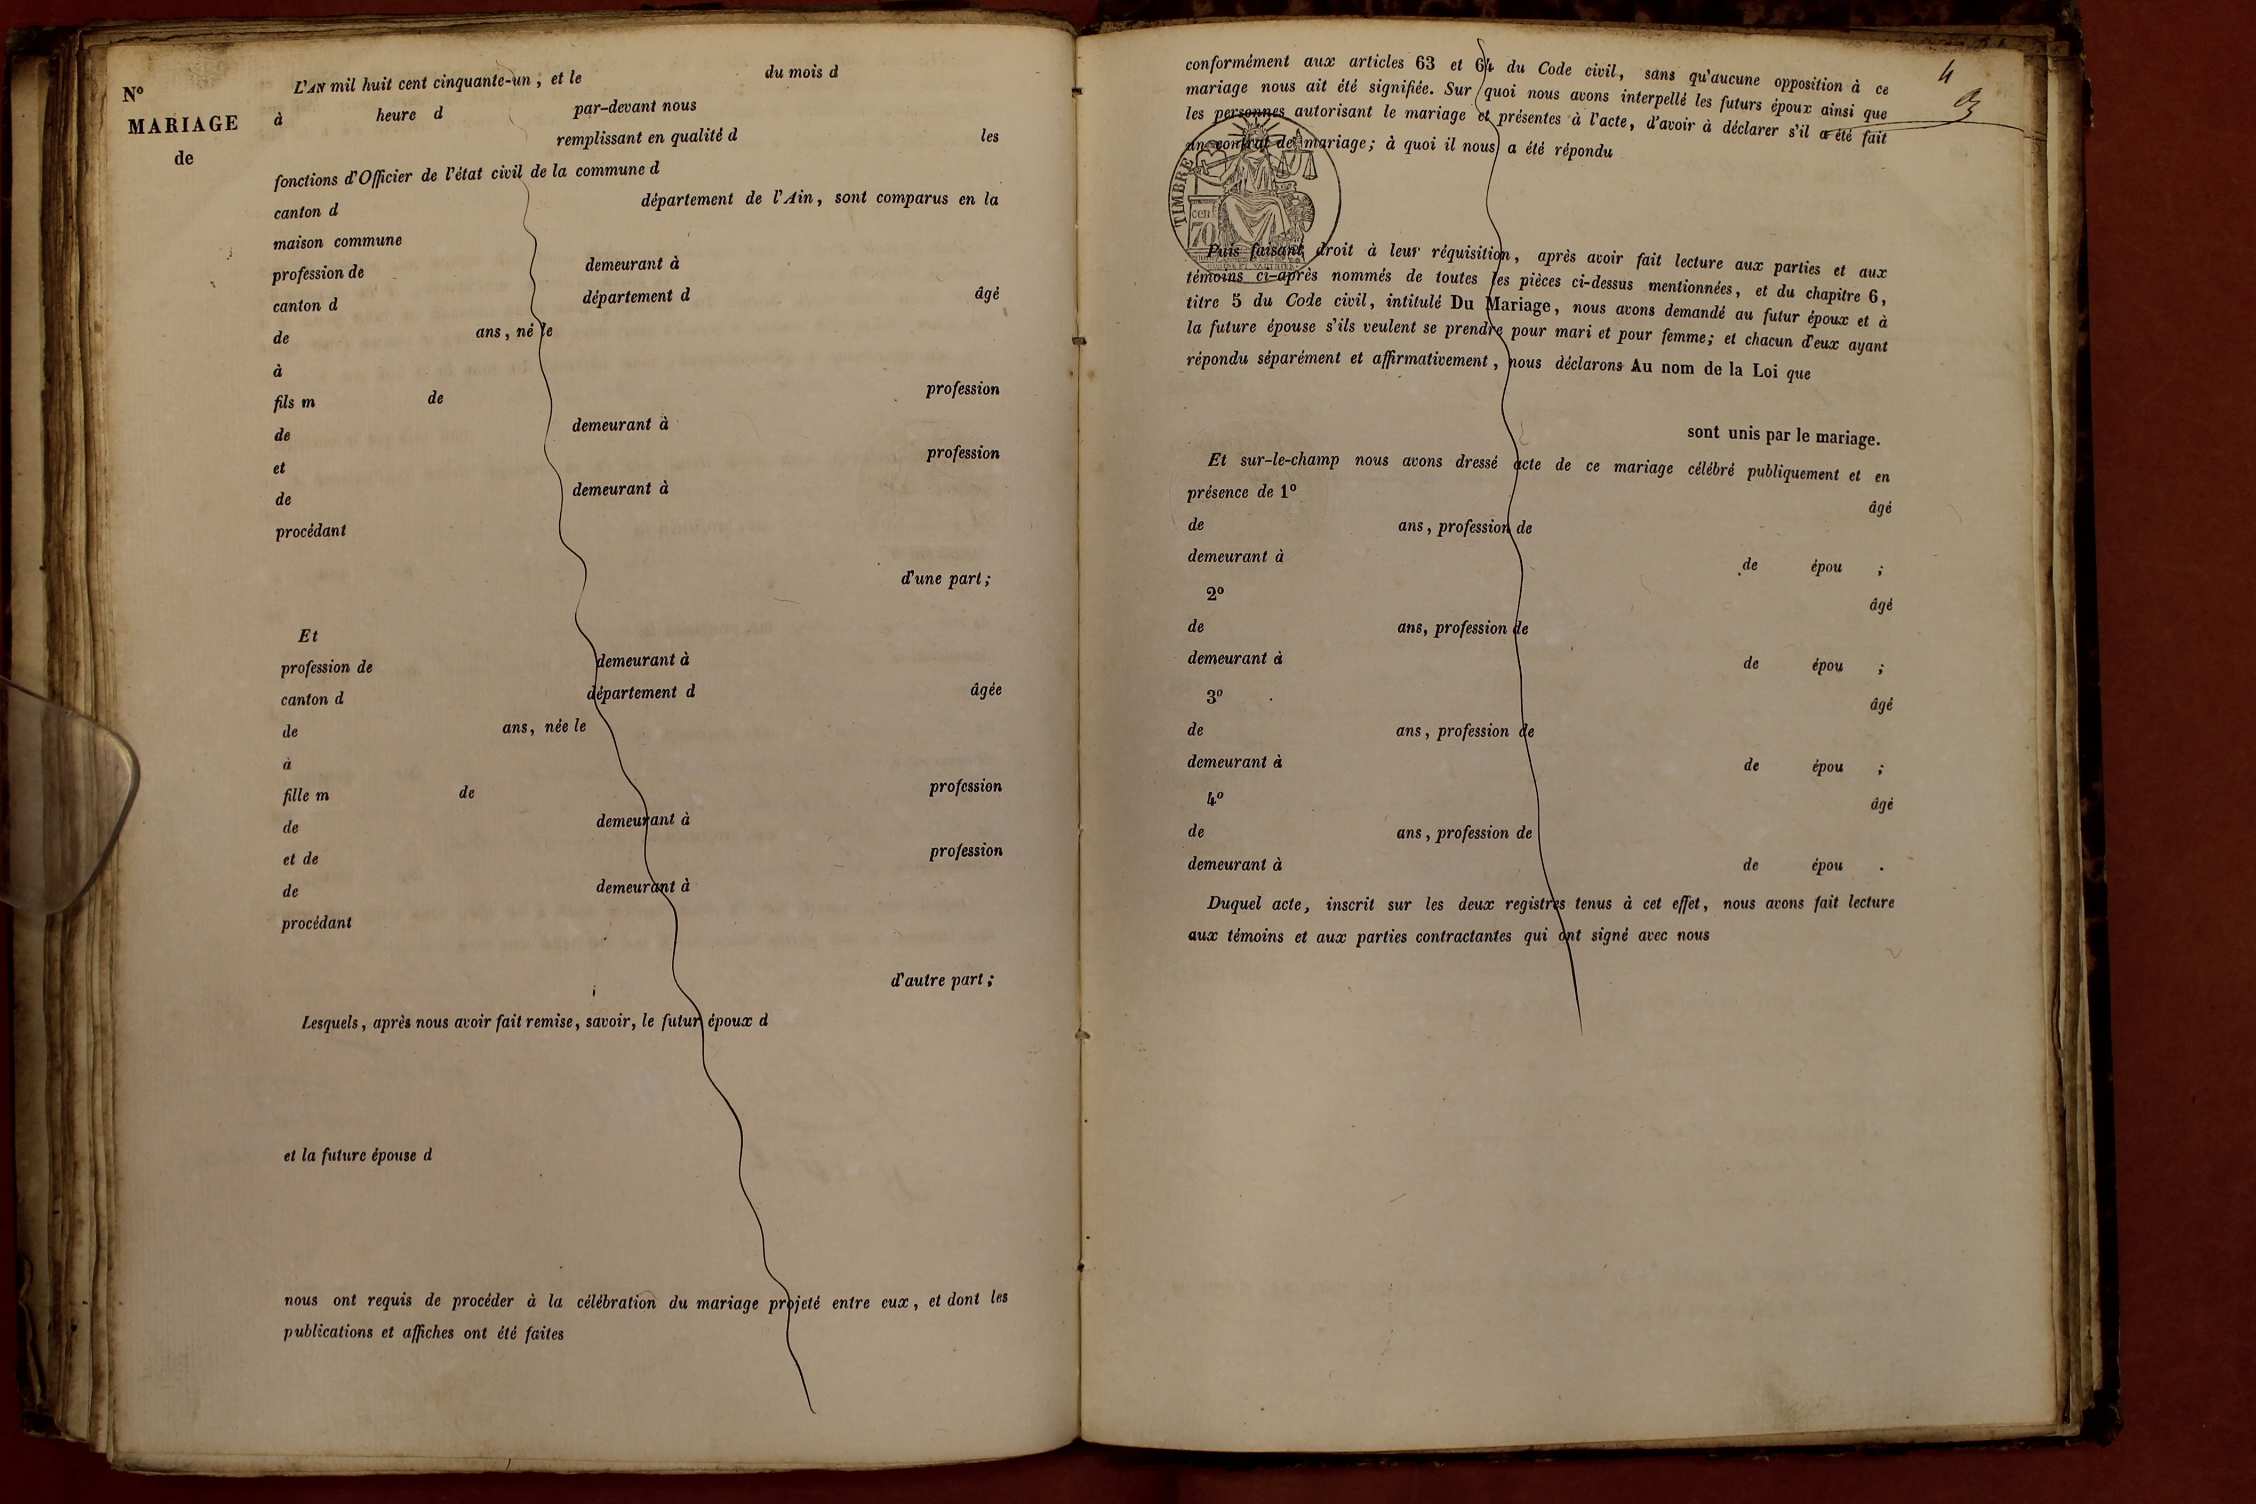 N°
MARIAGE
de
L'AN mil huit cent cinquante-un, et le du mois d
à heure d par-devant nous
remplissant en qualité d les
fonctions d'Officier de l'état civil de la commune d
canton d département de l'Ain, sont comparus en la
maison commune
profession de demeurant à
canton d département d âgé
de ans, né le
à
fils m de profession
de demeurant à
et profession
de demeurant à
procédant
d'une part;
Et
profession de demeurant à
canton d département d âgée
de ans, née le
à
fille m de profession
de demeurant à
et de profession
de demeurant à
procédant
d'autre part;
Lesquels, après nous avoir fait remise, savoir, le futur époux d
et la future épouse d
nous ont requis de procéder à la célébration du mariage projeté entre eux, et dont les
publications et affiches ont été faites
4
conformément aux articles 63 et 64 du Code civil, sans qu'aucune opposition à ce
mariage nous ait été signifiée. Sur quoi nous avons interpellé les futurs époux ainsi que
les personnes autorisant le mariage et présentes à l'acte, d'avoir à déclarer s'il a été fait
un contrat de mariage; à quoi il nous a été répondu
TIMBRE
cent
70
Puis faisant droit à leur réquisition, après avoir fait lecture aux parties et aux
témoins ci-après nommés de toutes les pièces ci-dessus mentionnées, et du chapitre 6,
titre 5 du Code civil, intitulé Du Mariage, nous avons demandé au futur époux et à
la future épouse s'ils veulent se prendre pour mari et pour femme; et chacun d'eux ayant
répondu séparément et affirmativement, nous déclarons Au nom de la Loi que
sont unis par le mariage.
Et sur-le-champ nous avons dressé acte de ce mariage célébré publiquement et en
présence de 1° âgé
de ans, profession de
demeurant à de épou ;
2° âgé
de ans, profession de
demeurant à de épou ;
3° âgé
de ans, profession de
demeurant à de épou ;
4° âgé
de ans, profession de
demeurant à de épou .
Duquel acte, inscrit sur les deux registres tenus à cet effet, nous avons fait lecture
aux témoins et aux parties contractantes qui ont signé avec nous